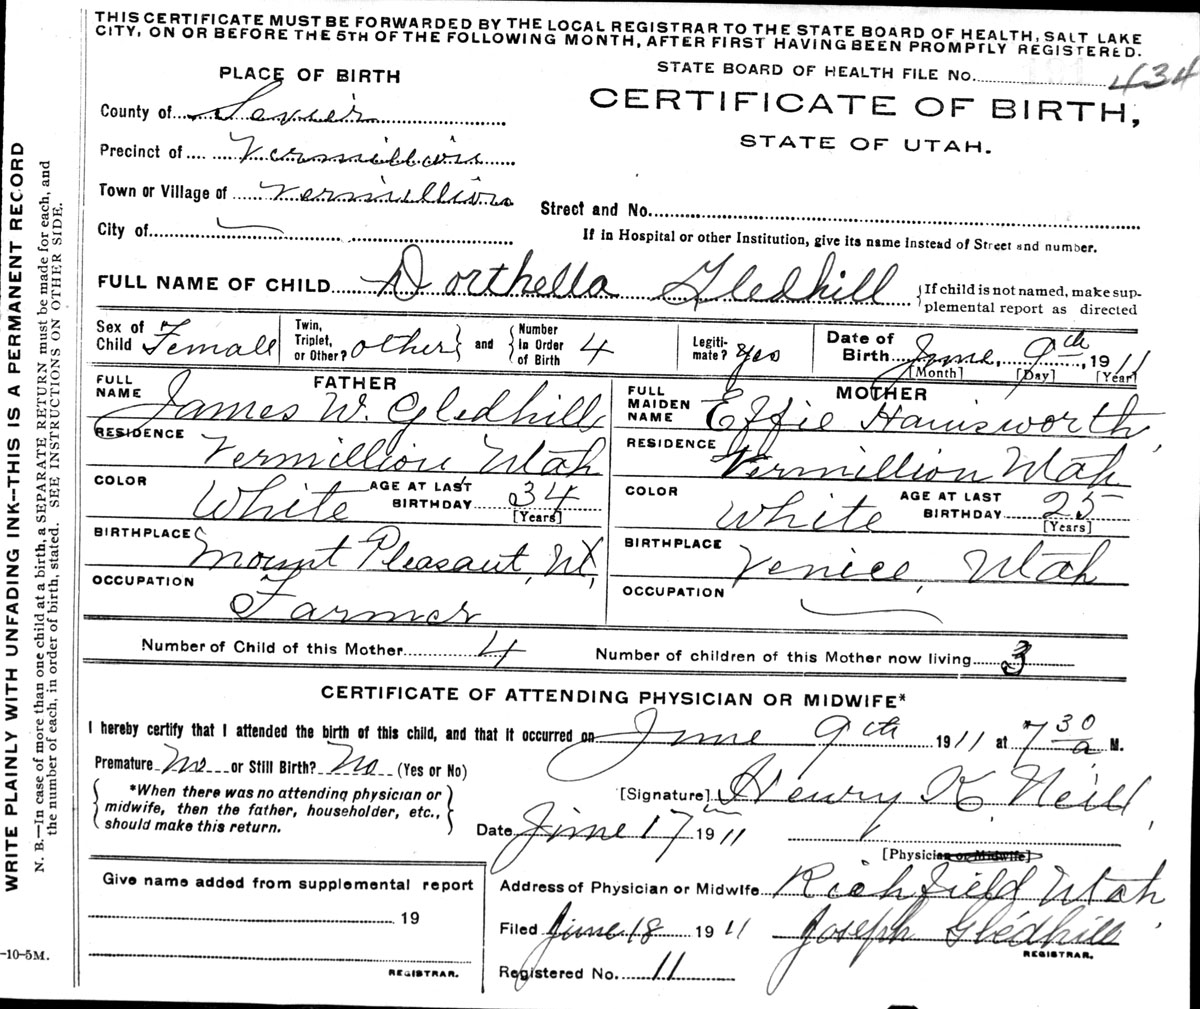 THIS CERTIFICATE MUST BE FORWARDED BY THE LOCAL REGISTRAR TO THE STATE BOARD OF HEALTH, SALT LAKE
CITY, ON OR BEFORE THE 5TH OF THE FOLLOWING MONTH, AFTER FIRST HAVING BEEN PROMPTLY REGISTERED.
PLACE OF BIRTH
STATE BOARD OF HEALTH FILE No. 434
County of Sevier
CERTIFICATE OF BIRTH,
STATE OF UTAH.
Precinct of Vermillion
Town or Village of Vermillion
Street and No.
City of
If in Hospital or other Institution, give its name instead of Street and number.
FULL NAME OF CHILD Dorthella Gledhill
{If child is not named, make sup-
plemental report as directed
Sex of Child Female
Twin, Triplet, or Other? other} and {Number in Order of Birth 4
Legiti-mate? yes
Date of Birth June, 9th, 1911
[Month] [Day] [Year]
FATHER
FULL NAME James W. Gledhill
RESIDENCE Vermillion Utah
COLOR White AGE AT LAST BIRTHDAY 34
[Years]
BIRTHPLACE Mount Pleasant, Ut,
OCCUPATION Farmer
MOTHER
FULL MAIDEN NAME Effie Hainsworth,
RESIDENCE Vermillion Utah
COLOR White AGE AT LAST BIRTHDAY 25
[Years]
BIRTHPLACE Venice, Utah
OCCUPATION
Number of Child of this Mother 4 Number of children of this Mother now living 3
CERTIFICATE OF ATTENDING PHYSICIAN OR MIDWIFE*
I hereby certify that I attended the birth of this child, and that it occurred on June 9th 1911 at 7 30 a M.
Premature No or Still Birth? No (Yes or No)
{*When there was no attending physician or
midwife, then the father, householder, etc.,
should make this return.}
[Signature] Henry K. Neill,
Date June 17th 1911
[Physician or Midwife]
Address of Physician or Midwife Richfield Utah,
Give name added from supplemental report
19
REGISTRAR.
Filed June 18 1911 Joseph Gledhill
REGISTRAR.
Registered No. 11
WRITE PLAINLY WITH UNFADING INK--THIS IS A PERMANENT RECORD
N. B.—In case of more than one child at a birth, a SEPARATE RETURN must be made for each, and
the number of each, in order of birth, stated. SEE INSTRUCTIONS ON OTHER SIDE.
-10-5M.